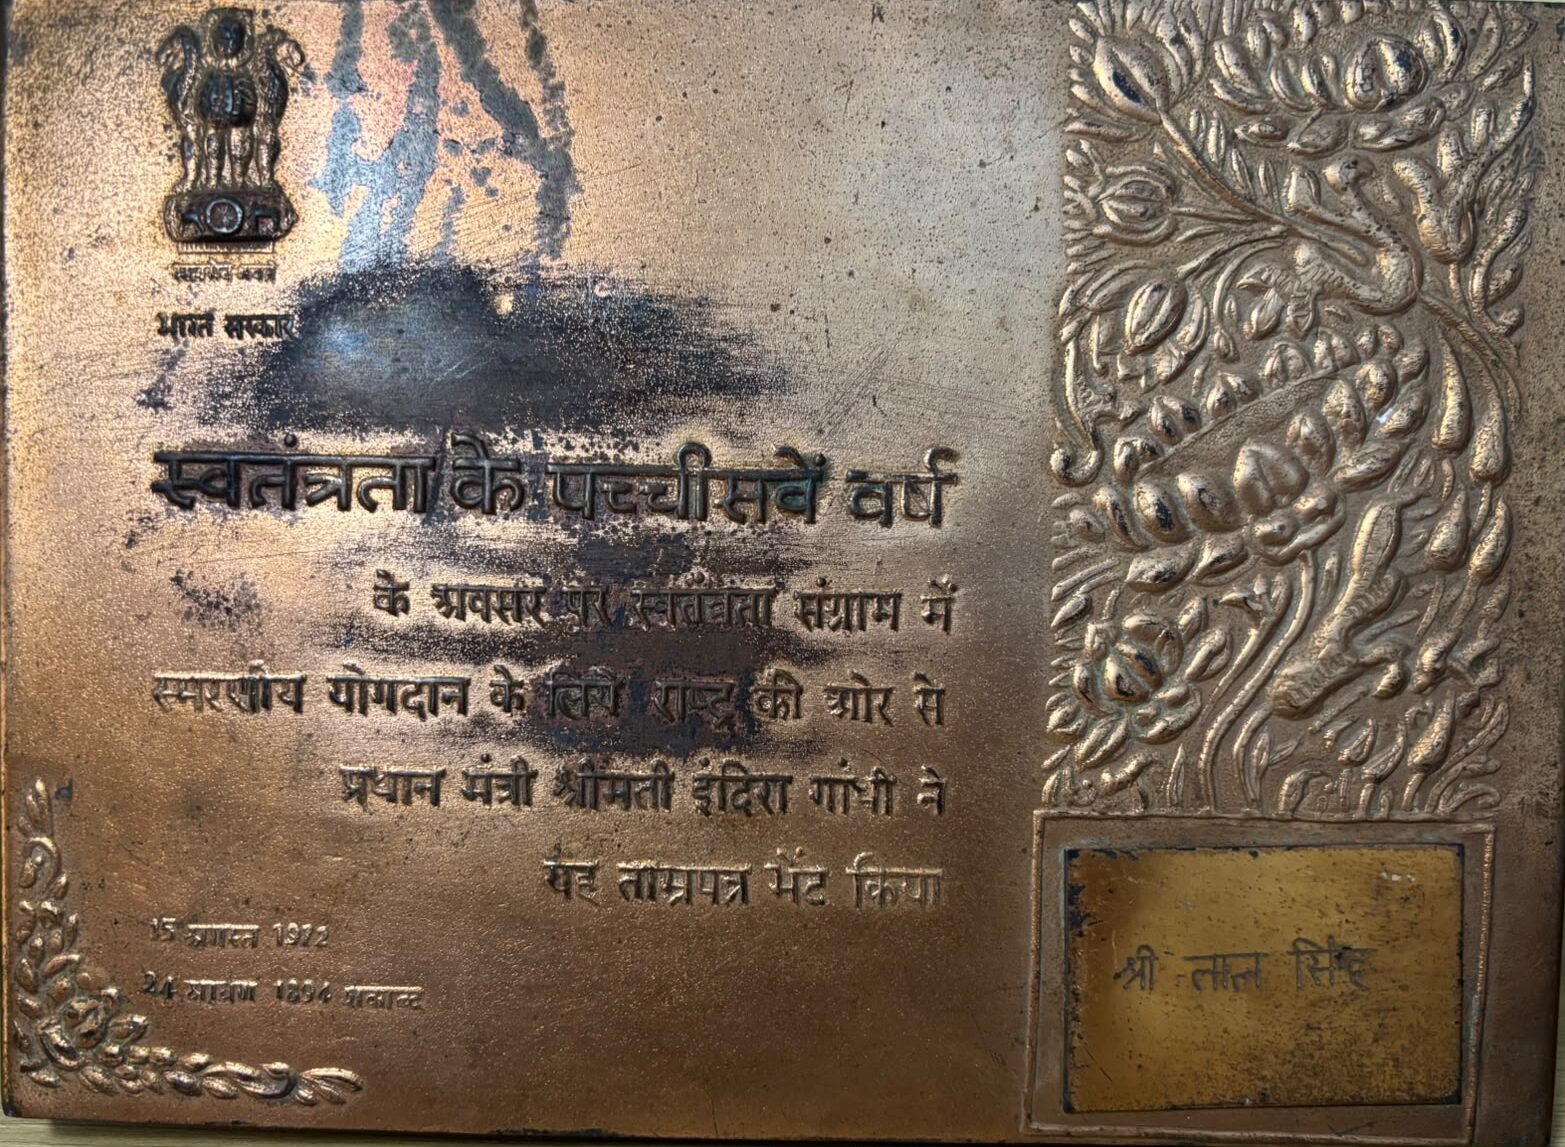 सत्यमेव जयते
भारत सरकार
स्वतंत्रता के पच्चीसवें वर्ष
के अवसर पर स्वतंत्रता संग्राम में
स्मरणीय योगदान के लिये राष्ट्र की ओर से
प्रधान मंत्री श्रीमती इंदिरा गांधी ने
यह ताम्रपत्र भेंट किया
15 अगस्त 1972
24 श्रावण 1894 शकाब्द
श्री लाल सिंह